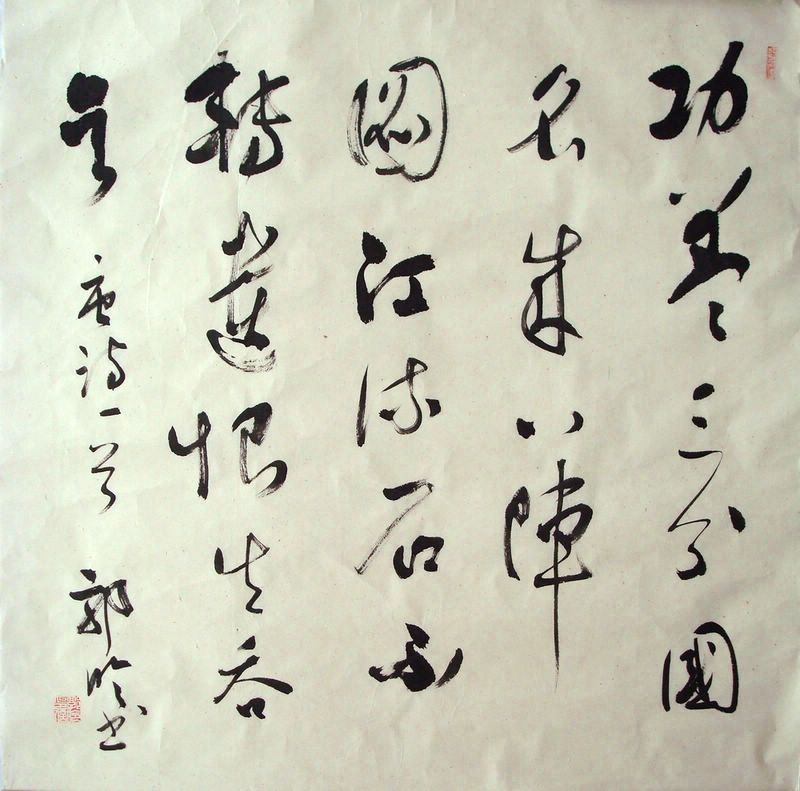 功蓋三分國
名成八陣
圖江流石不
轉遺恨失吞
吳 唐詩一首 郭 書